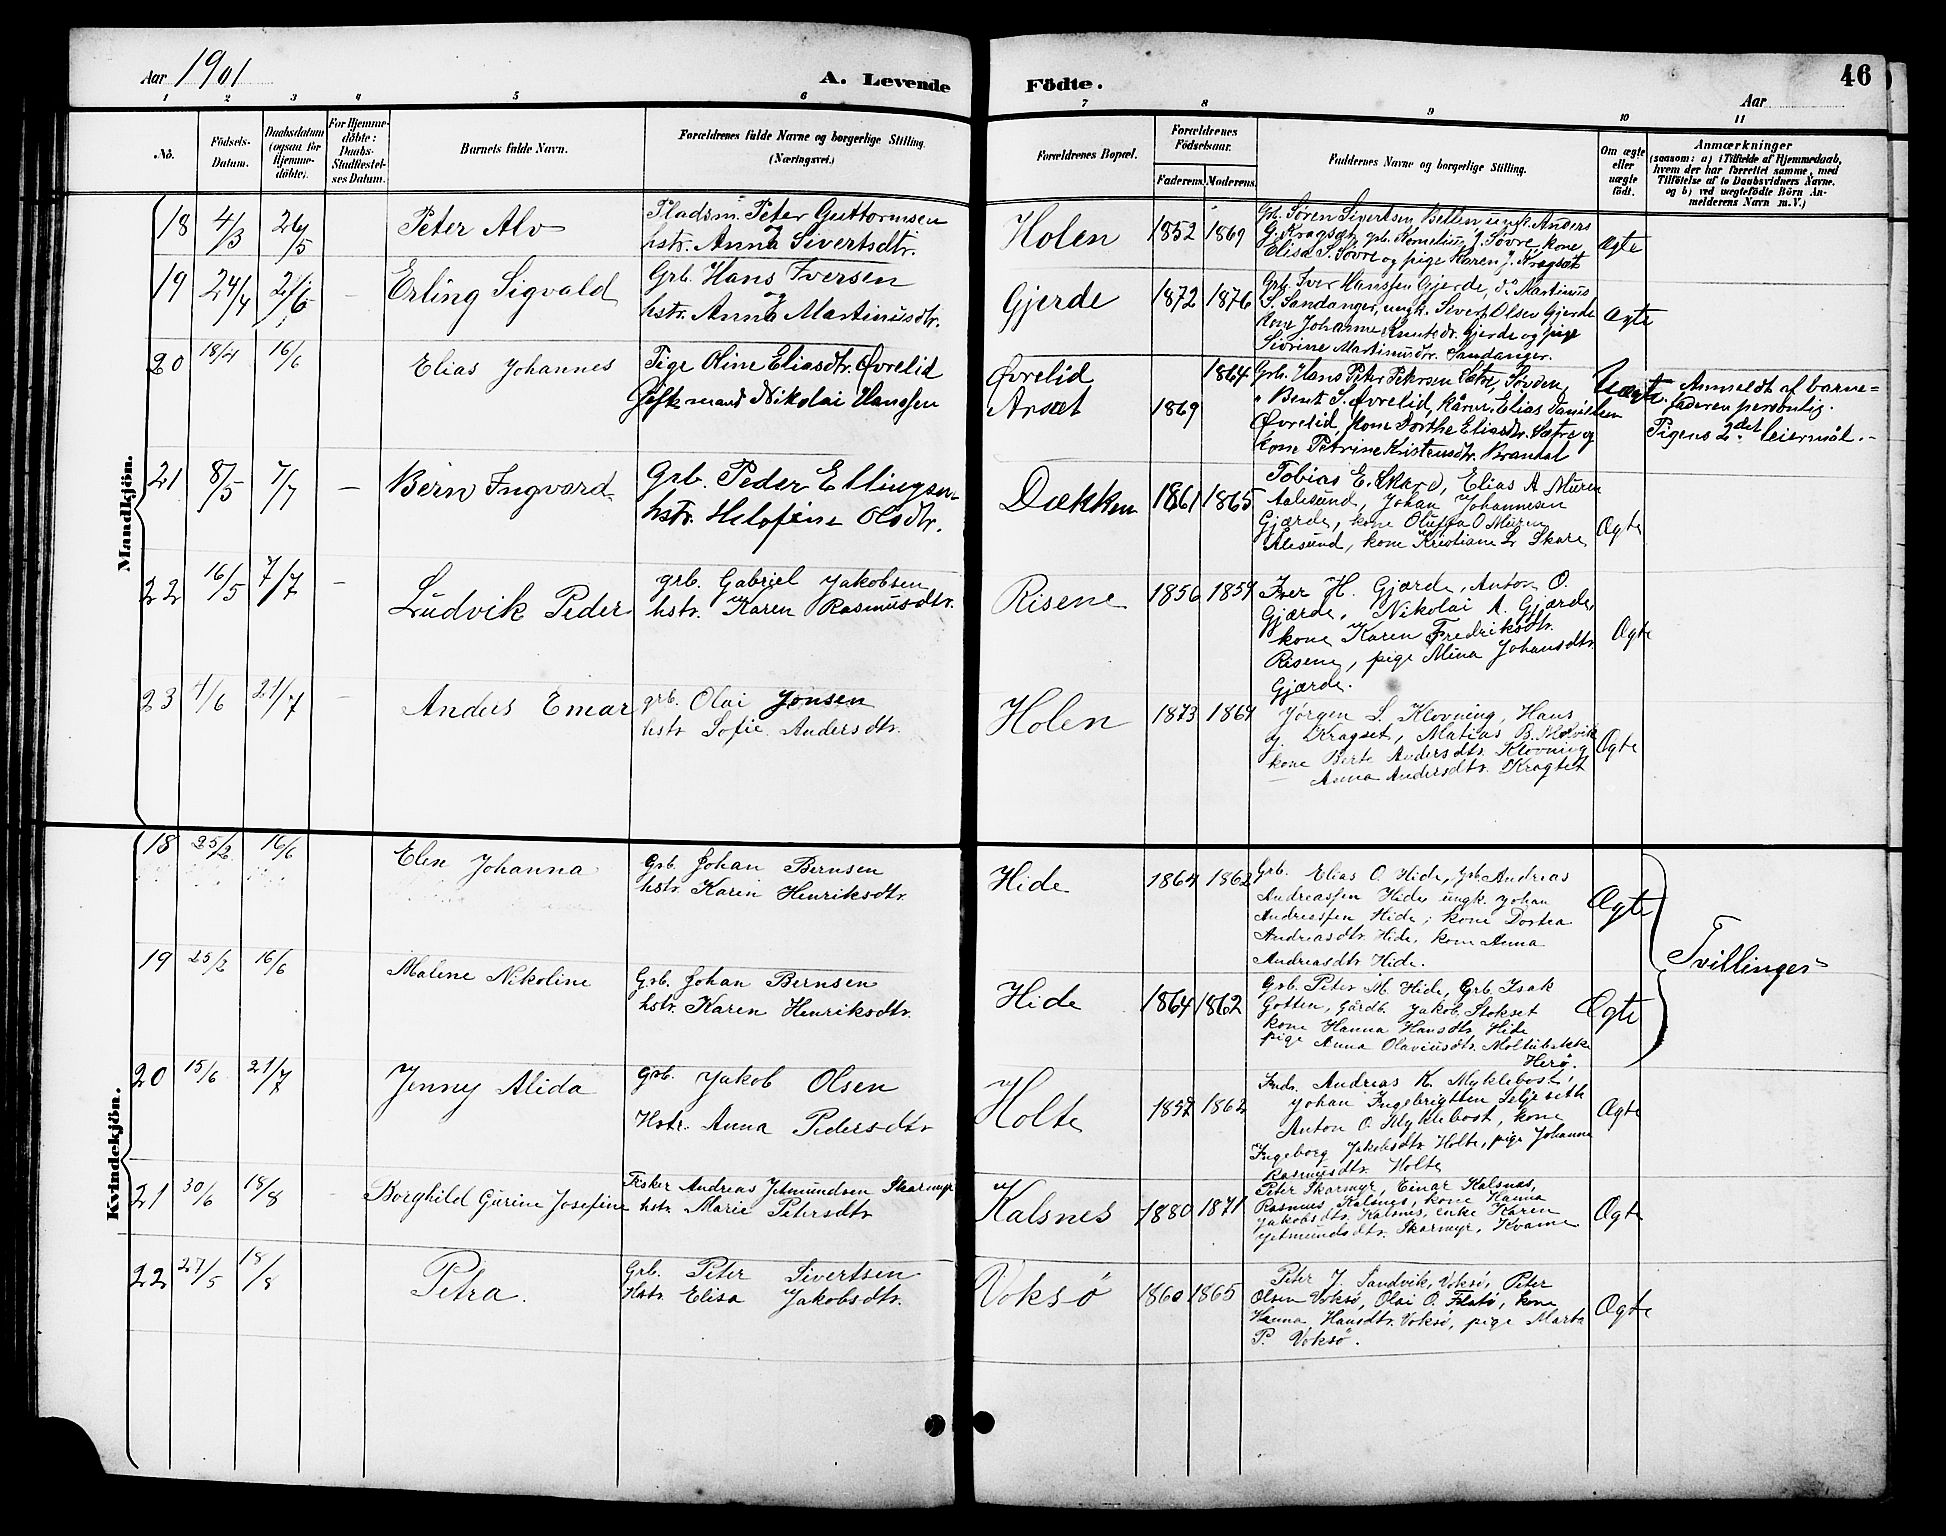 Aar 1901
A. Levende
Födte.
46
Aar
1 2 3 4 5 6 7 8 9 10 11
No.
Födsels-
Datum.
Daabsdatum
(ogsaa for
Hjemme-
döbte).
For Hjemme-
döbte:
Daabs-
Stadfæstel-
ses Datum.
Barnets fulde Navn.
Forældrenes fulde Navne og borgerlige Stilling.
(Næringsvei.)
Forældrenes Bopæl.
Forældrenes
Födselsaar.
Faderens. Moderens.
Faddernes Navne og borgerlige Stilling.
Om ægte
eller
uægte
födt.
Anmærkninger
(saasom: a) i Tilfælde af Hjemmedaab,
hvem der har forrettet samme, med
Tilföielse af to Daabsvidners Navne,
og b) ved uægtefödte Börn An-
melderens Navn m. V.)
Mandkjön.
18 4/3 26/5 Peter Alv
Pladsm. Peter Guttormsen
og
hstr. Anna Sivertsdtr.
Holen 1852 1869
Grb. Søren Sivertsen ungk. Anders
G. Kragset, grb. Kornelius J. Søvre, kone
Elisa S. Søvre og pige Karen J. Kragset
Ægte
19 24/4 – Erling Sigvald
Grb. Hans Iversen
og
hstr. Anna Martinusdtr.
Gjerde 1872 1876
Grb. Iver Hanssen Gjerde, do Martinus
S. Sandanger, ungk. Sivert Olsen Gjerde
kone Johanne Knutsdr. Gjerde og pige
Sivrine Martinusdtr. Sandanger.
Ægte
20 18/4 16/6 Elias Johannes
Pige Oline Eliasdtr. Øvrelid
Gift mand Nikolai Hanssen
Øvrelid 1864
Aarset 1869
Grb. Hans Peter Petersen Sætre, Søvden,
" Bent S. Øvrelid, kårm. Elias Danielsen
Øvrelid, kone Dorthe Eliasdtr. Sætre og
kone Petrine Kristensdtr. Brandal
Uægte.
Anmeldt af barne=
faderen personlig.
Pigens 2det leiermål.–
21 8/5 7/7 – Bern Ingvard
Grb. Peder Ellingsen
hstr. Olsdtr.
Dækken 1861 1865
Tobias E. Skare, Elias A Muren
Aalesund, Johan Johannesen
Gjærde, kone Oluffa O Muren
Alesund, kone Kristiane L Skare
Ægte
22 16/5 7/7 – Ludvik Peder
grb. Gabriel Jakobsen
hstr. Karen Rasmusdtr.
Risene 1856 1859
Iver H. Gjærde, Anton O.
Gjærde, Nikolai A. Gjærde,
kone Karen Fredriksdtr.
Risene, pige Mina Johansdtr.
Gjærde.
Ægte
23 4/6 21/7 – Anders Emar
grb. Olai Jonsen
hstr Sofie Andersdtr.
Holen 1873 1869
Jørgen L. Klovning, Hans
J. Kragset, Matias B.
kone Berte Andersdtr. Klovning
– Anna Andersdtr. Kragset
Ægte
Kvindekjön.
18 25/2 16/6 Elen Johanna
Grb. Johan Bernsen
hstr. Karen Henriksdtr.
Hide 1864 1862
Grb. Elias O. Hide, grb. Andreas
Andreassen Hide, ungk. Johan
Andreassen Hide; kone Dortea
Andreasdtr. Hide, kone Anna
Andreasdtr Hide.
Ægte
Tvillinger
19 25/2 16/6 Malene Nikoline
Grb. Johan Bernsen
hstr. Karen Henriksdtr.
Hide 1864 1862
Grb. Peter M. Hide, Grb. Isak
Gotten, Gårdb. Jakob Stokset
kone Hanna Hansdtr. Hide
pige Anna Olaviusdtr. Moltubakke
Herø.
Ægte
20 15/6 21/7 Jenny Alida
Grb. Jakob Olsen
Hstr. Anna Pedersdtr
Holte 1857 1862
Andreas K. Myklebost,
Johan Ingebrigtsen Seljeseth
Anton O. Myklebost, kone
Ingeborg Jakobsdtr. Holte, pige Johanna
Rasmusdtr. Holte
Ægte
21 30/6 18/8 – Borghild Gurine Josefine
Fisker Andreas Jetmundsen Skarmyr
hstr. Marie Petersdtr
Kalsnes 1880 1871
Peter Skarmyr, Einar Kalsnes,
Rasmus Kalsnes, kone Hanna
Jakobsdtr. Kalsnes, enke Karen
Jetmundsdtr. Skarmyr, Kvame
Ægte
22 27/5 18/8 Petra.
Grb. Peter Sivertsen
Hstr. Elisa Jakobsdtr.
Voksø 1860 1865
Peter J. Sandvik, Voksø, Peter
Olsen Voksø, Olai O. Flatø, kone
Hanna Hansdtr. Voksø, pige Marta
P. Voksø.
Ægte